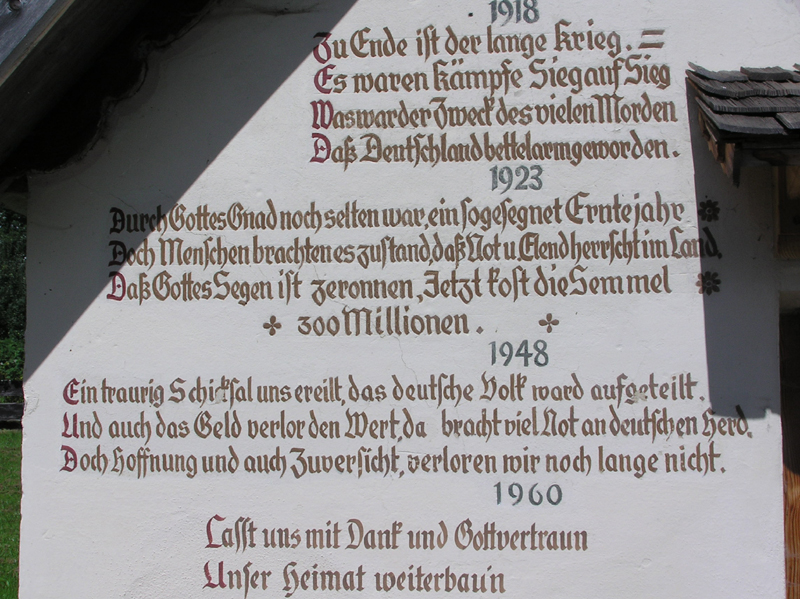 1918
Zu Ende ist der lange Krieg. =
Es waren Kämpfe Sieg auf Sieg
Was war der Zweck des vielen Morden
Daß Deutschland bettelarm geworden.
1923
Durch Gottes Gnad noch selten war, ein so gesegnet Erntejahr
Doch Menschen brachten es zustand, daß Not u. Elend herrscht im Land.
Daß Gottes Segen ist zeronnen, Jetzt kost die Semmel
300 Millionen.
1948
Ein traurig Schicksal uns ereilt, das deutsche Volk ward aufgeteilt.
Und auch das Geld verlor den Wert, da bracht viel Not an deutschen Herd.
Doch Hoffnung und auch Zuversicht, verloren wir noch lange nicht.
1960
Lasst uns mit Dank und Gottvertraun
Unser Heimat weiterbau'n